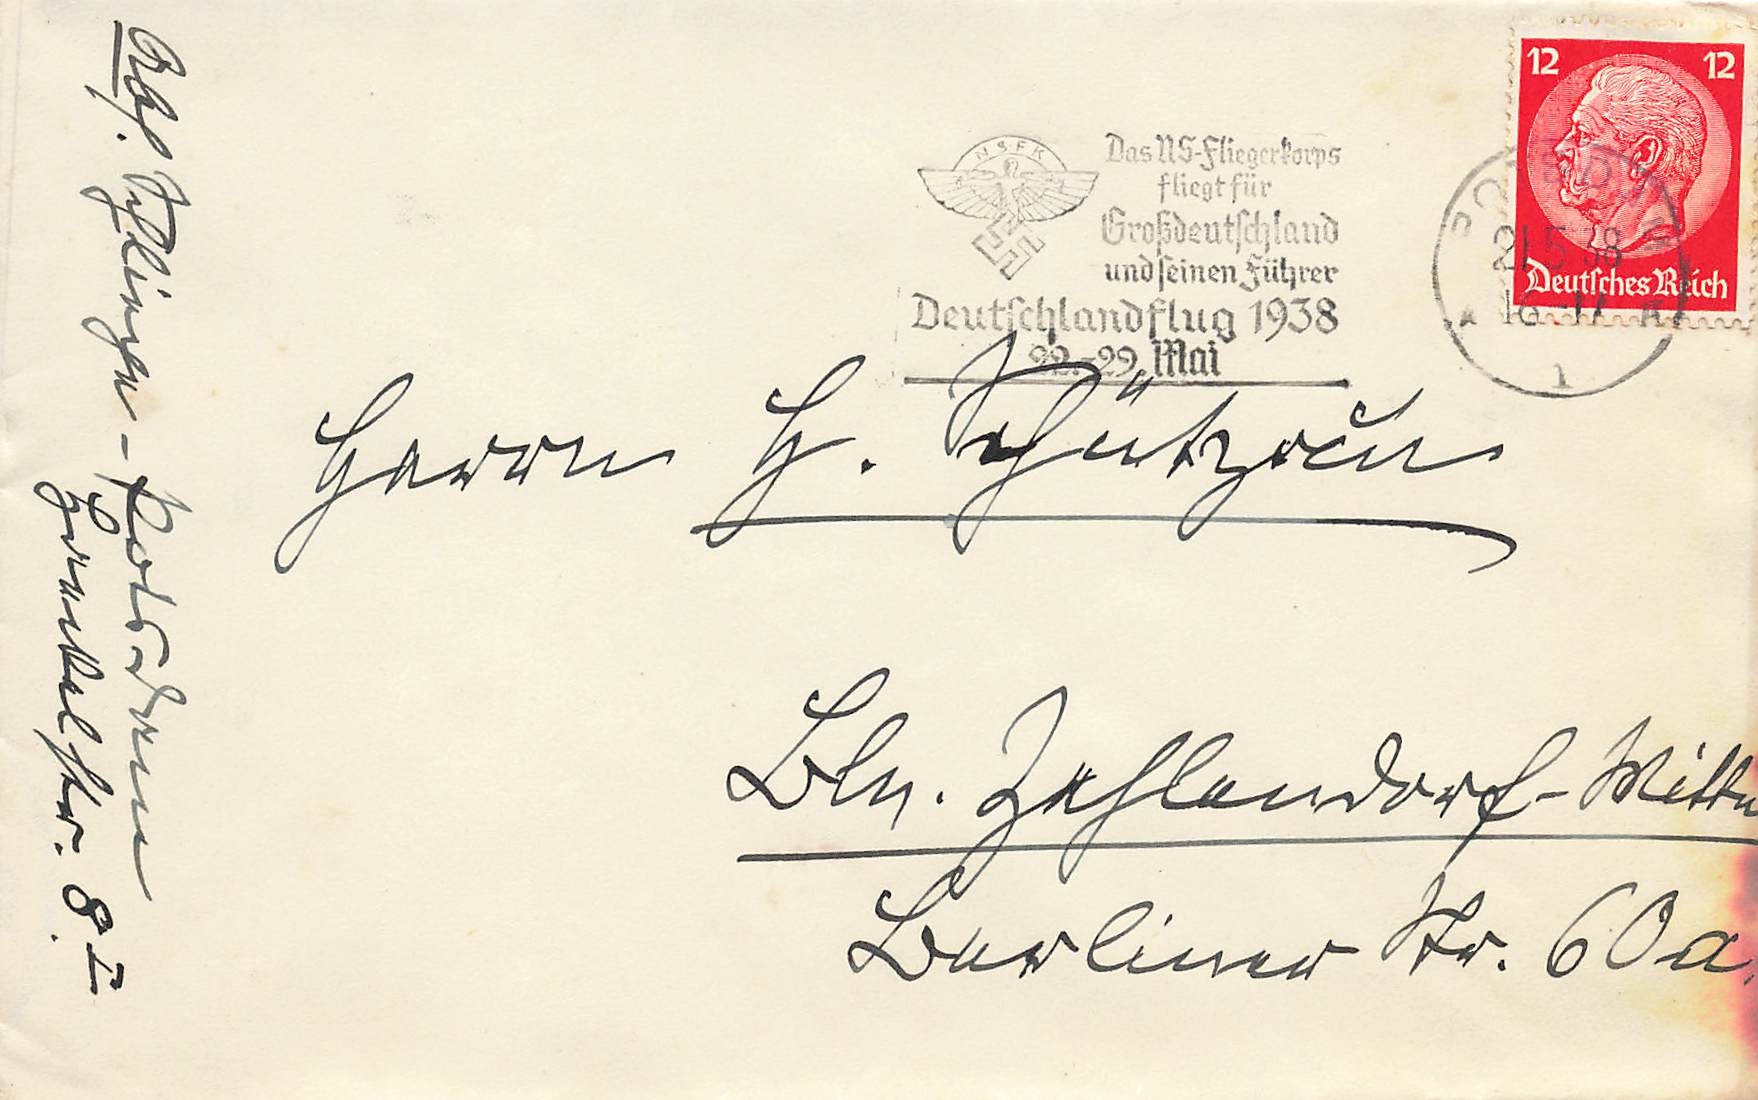 12 12
Deutsches Reich
NSFK
Das NS-Fliegerkorps
fliegt für
Großdeutschland
und seinen Führer
Deutschlandflug 1938
22.-29. Mai
POTSDAM
21.5.38
16-17
1
Herrn H. Schützrun
Bln. Zehlendorf-Mitte
Berliner Str. 60a.
Abs. - Potsdam
Str. 8. I